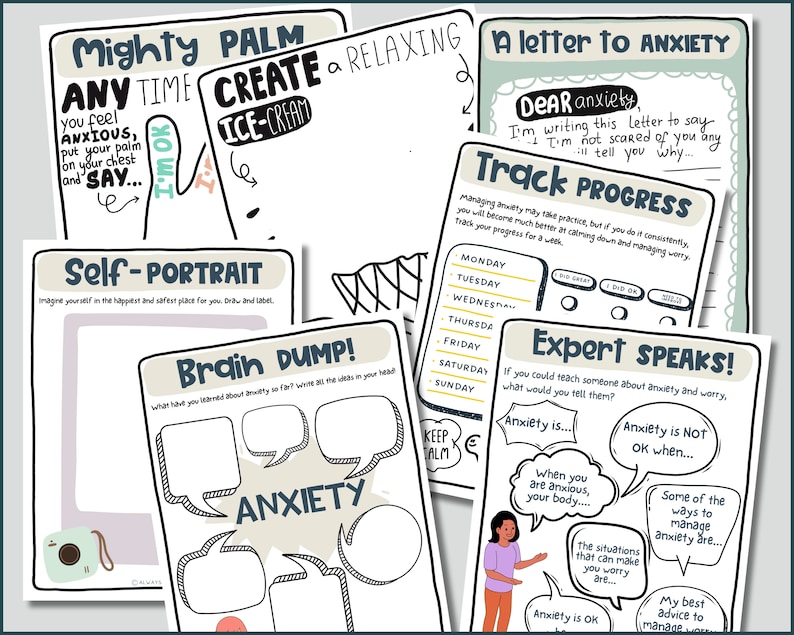 Mighty PALM
ANY TIME
you feel
ANXIOUS,
put your palm
on your chest
and SAY...
I'm OK
I'm
CREATE a RELAXING
ICE-CREAM
A letter to ANXIETY
DEAR anxiety,
I'm writing this letter to say
I'm not scared of you any
will tell you why...
Track PROGRESS
Managing anxiety may take practice, but if you do it consistently,
you will become much better at calming down and managing worry.
Track your progress for a week.
MONDAY
TUESDAY
WEDNESDAY
THURSDAY
FRIDAY
SATURDAY
SUNDAY
I DID GREAT
I DID OK
NEED TO
IMPROVE
KEEP
CALM
Self-PORTRAIT
Imagine yourself in the happiest and safest place for you. Draw and label.
©ALWAYS
Brain DUMP!
What have you learned about anxiety so far? Write all the ideas in your head!
ANXIETY
Expert SPEAKS!
If you could teach someone about anxiety and worry,
what would you tell them?
Anxiety is...
Anxiety is NOT
OK when...
When you
are anxious,
your body....
Some of the
ways to
manage
anxiety are...
The situations
that can make
you worry
are...
Anxiety is OK
My best
advice to
manage worry